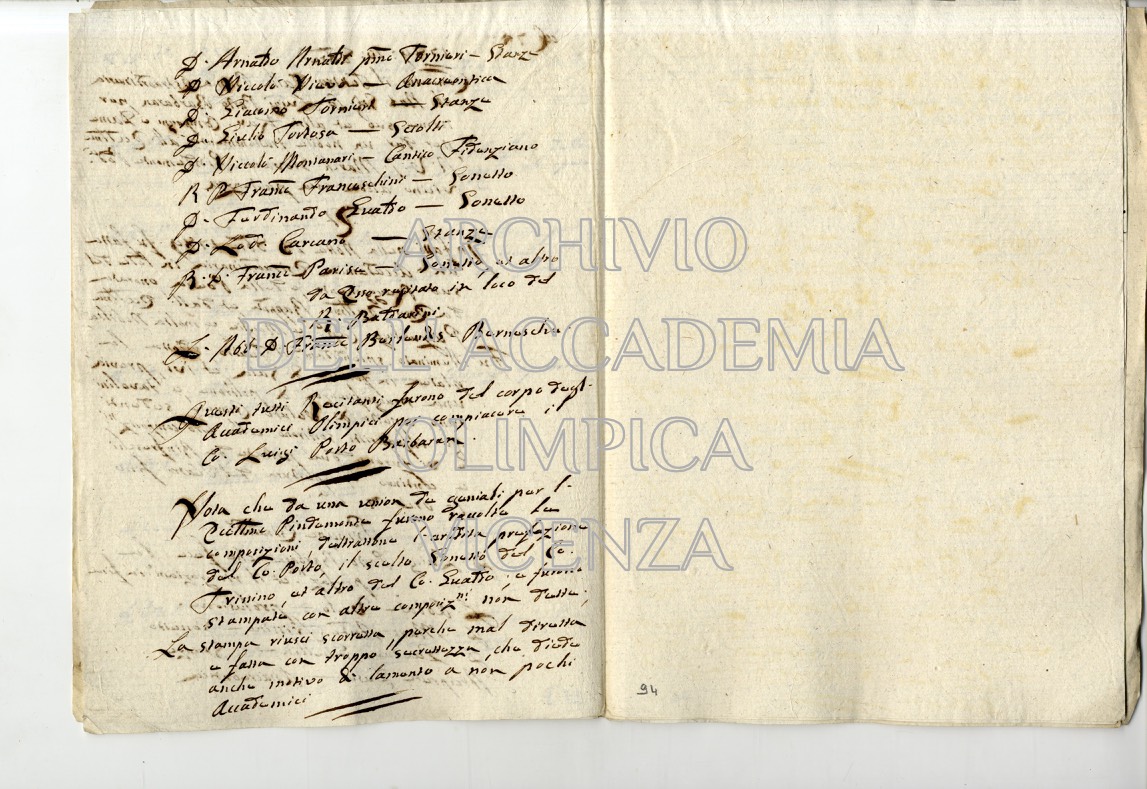 D. Arnaldo Arnaldi pmo Tornieri – Stanze
D. Niccolò Vicen — Anacreontica
D. Giacomo Tornieri — Stanze
D. Giulio Tortosa — Sciolti
D. Niccolò Montanari – Cantico Fidenziano
R. P. Franc. Franceschini – Sonetto
D. Ferdinando Gualdo — Sonetto
D. Lod. Carcano — Stanze
R. D. Franc. Parise — Sonetto, et altro
da esso recitato in loco del
R. Baldarini
L'Ab. D. Franc. Berlendis – Bernesche
Questi tutti Recitanti furono del corpo degl'
Accademici Olimpici per compiacere il
Co. Luigi Porto Barbaran.
Nota che da una union de geniali per l'
Eccellmo Pindemonte furono raccolte le
composizioni dettrattone l'ardita prefazione
del Co. Porto, il sciolto Sonetto del Co.
Trissino, et altro del Co. Gualdo; e furono
stampate con altre composizni non dette;
La stampa riuscì scorretta, perche mal diretta
e fatta con troppo secretezza, che diede
anche motivo di lamento a non pochi
Accademici
94
ARCHIVIO
DELL'ACCADEMIA
OLIMPICA
VICENZA